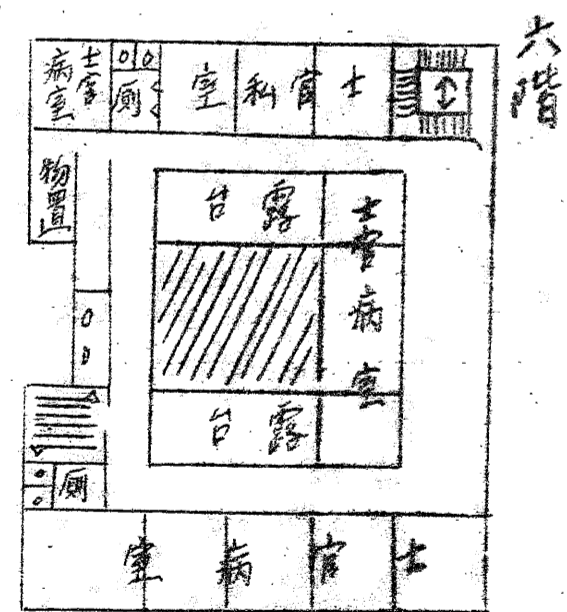 六階
士官私室
厠
士官病室
物置
露台
士官病室
露台
厠
士官病室